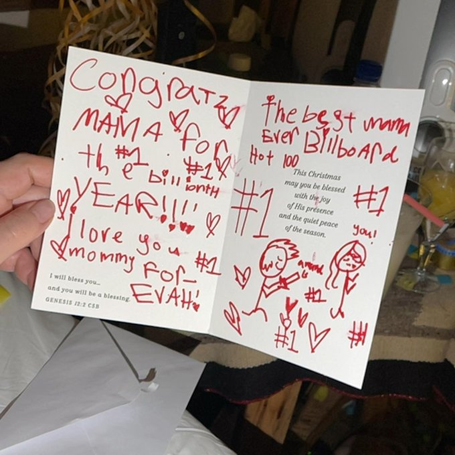 Congratz
MAMA for
the #1 #1
billionth
YEAR!!!!
I love you
mommy FOR- #1
EVAH!
I will bless you...
and you will be a blessing.
GENESIS 12:2 CSB
The best mama
Ever Billboard
Hot 100
This Christmas
may you be blessed
with the joy
of His presence
and the quiet peace
of the season.
#1
#1
you!
mama
#1
#1